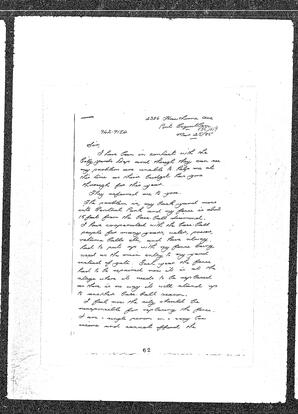 2386 Hawthorne Ave
Port Coquitlam
942-9126
Sir
I have been in contact with the
City Yards Dept and though they can see
my problem are unable to help me at
this time as their budget has gone
through for this year.
They referred me to you.
The problem is, my back yard runs
onto Central Park and my fence is about
15 feet from the Base Ball diamond.
I have cooperated with the Base Ball
people for many years, water, power,
volume balls etc, and have always
had to put up with my fence being
used as the main entry to my yard
instead of gate. Each year the fence
had to be repaired now it is at the
stage where it needs to be replaced
as there is no way it will stand up
to another Base Ball season.
I feel now the city should be
responsible for replacing the fence.
I am a single person on a very low
income and cannot afford the
62